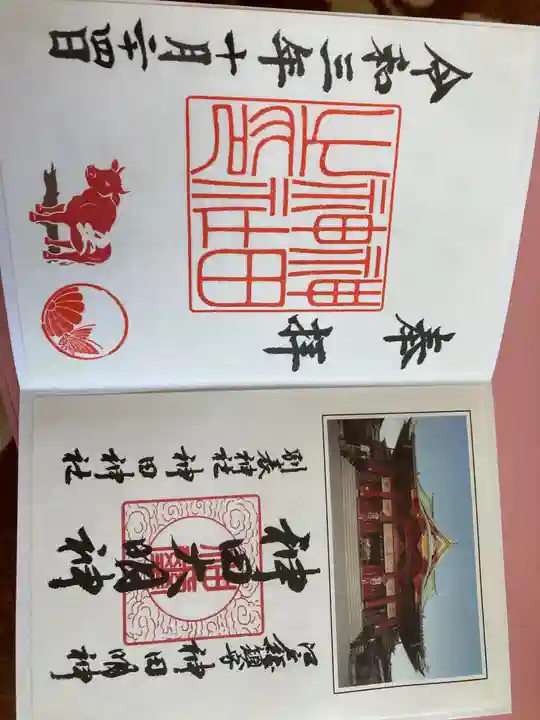 奉拝
神田神社之印
令和三年十月二十四日
江戸総鎮守 神田明神
神田大明神
別表神社 神田神社